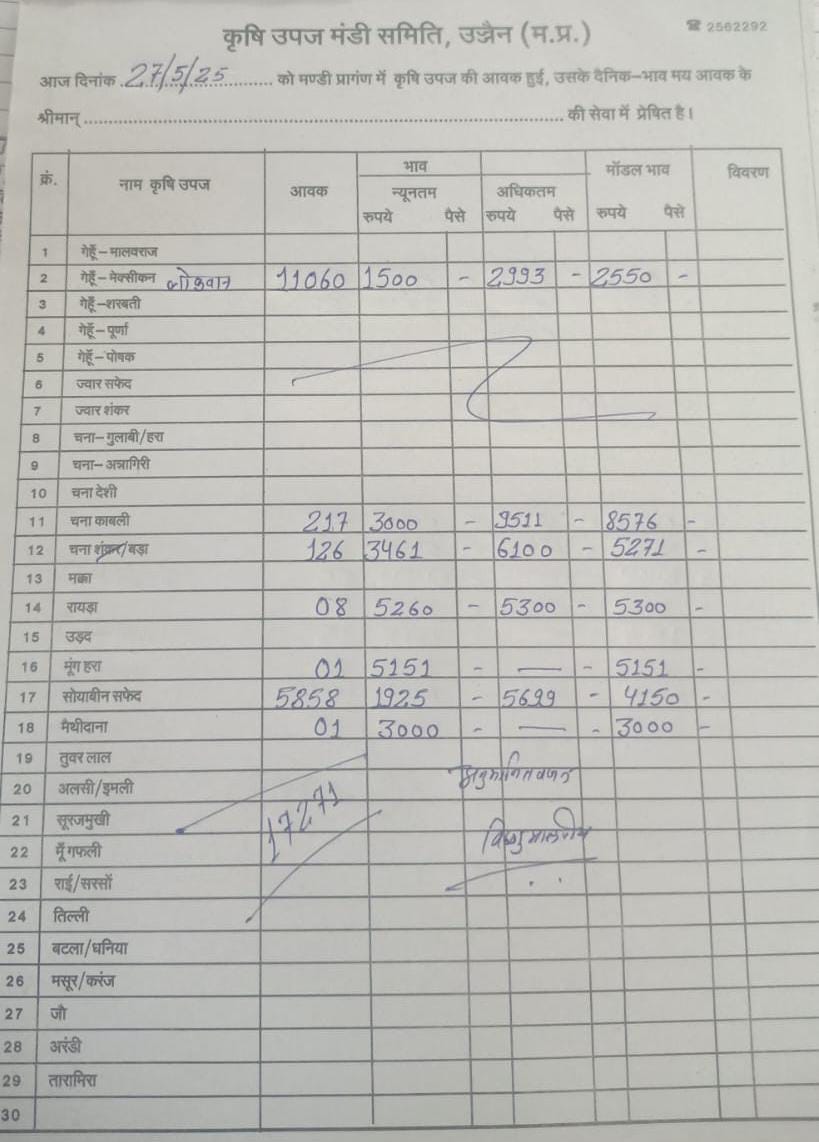 कृषि उपज मंडी समिति, उज्जैन (म.प्र.) ☎ 2562292
आज दिनांक 27/5/25 को मण्डी प्रागंण में कृषि उपज की आवक हुई, उसके दैनिक-भाव मय आवक के
श्रीमान् की सेवा में प्रेषित है।
क्रं. नाम कृषि उपज आवक भाव मॉडल भाव विवरण
न्यूनतम अधिकतम
रुपये पैसे रुपये पैसे रुपये पैसे
1 गेहूँ-मालवराज
2 गेहूँ-मेक्सीकन लोकवान 11060 1500 - 2993 - 2550 -
3 गेहूँ-शरबती
4 गेहूँ-पूर्णा
5 गेहूँ-पोषक
6 ज्वार सफेद
7 ज्वार शंकर
8 चना-गुलाबी/हरा
9 चना-अन्नागिरी
10 चना देशी
11 चना काबली 217 3000 - 9511 - 8576 -
12 चना शंकर/बड़ा 126 3461 - 6100 - 5271 -
13 मक्का
14 रायड़ा 08 5260 - 5300 - 5300 -
15 उड़द
16 मूंग हरा 01 5151 - — - 5151 -
17 सोयाबीन सफेद 5858 1925 - 5699 - 4150 -
18 मैथीदाना 01 3000 - — - 3000 -
19 तुवर लाल
20 अलसी/इमली अनुमानित वजन
21 सूरजमुखी 17271
22 मूँगफली
23 राई/सरसों
24 तिल्ली
25 बटला/धनिया
26 मसूर/करंज
27 जौ
28 अरंडी
29 तारामिरा
30